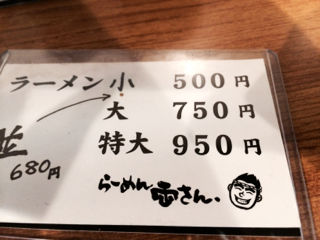 ラーメン 小 500円
大 750円
特大 950円
並
680円
らーめん
さん.